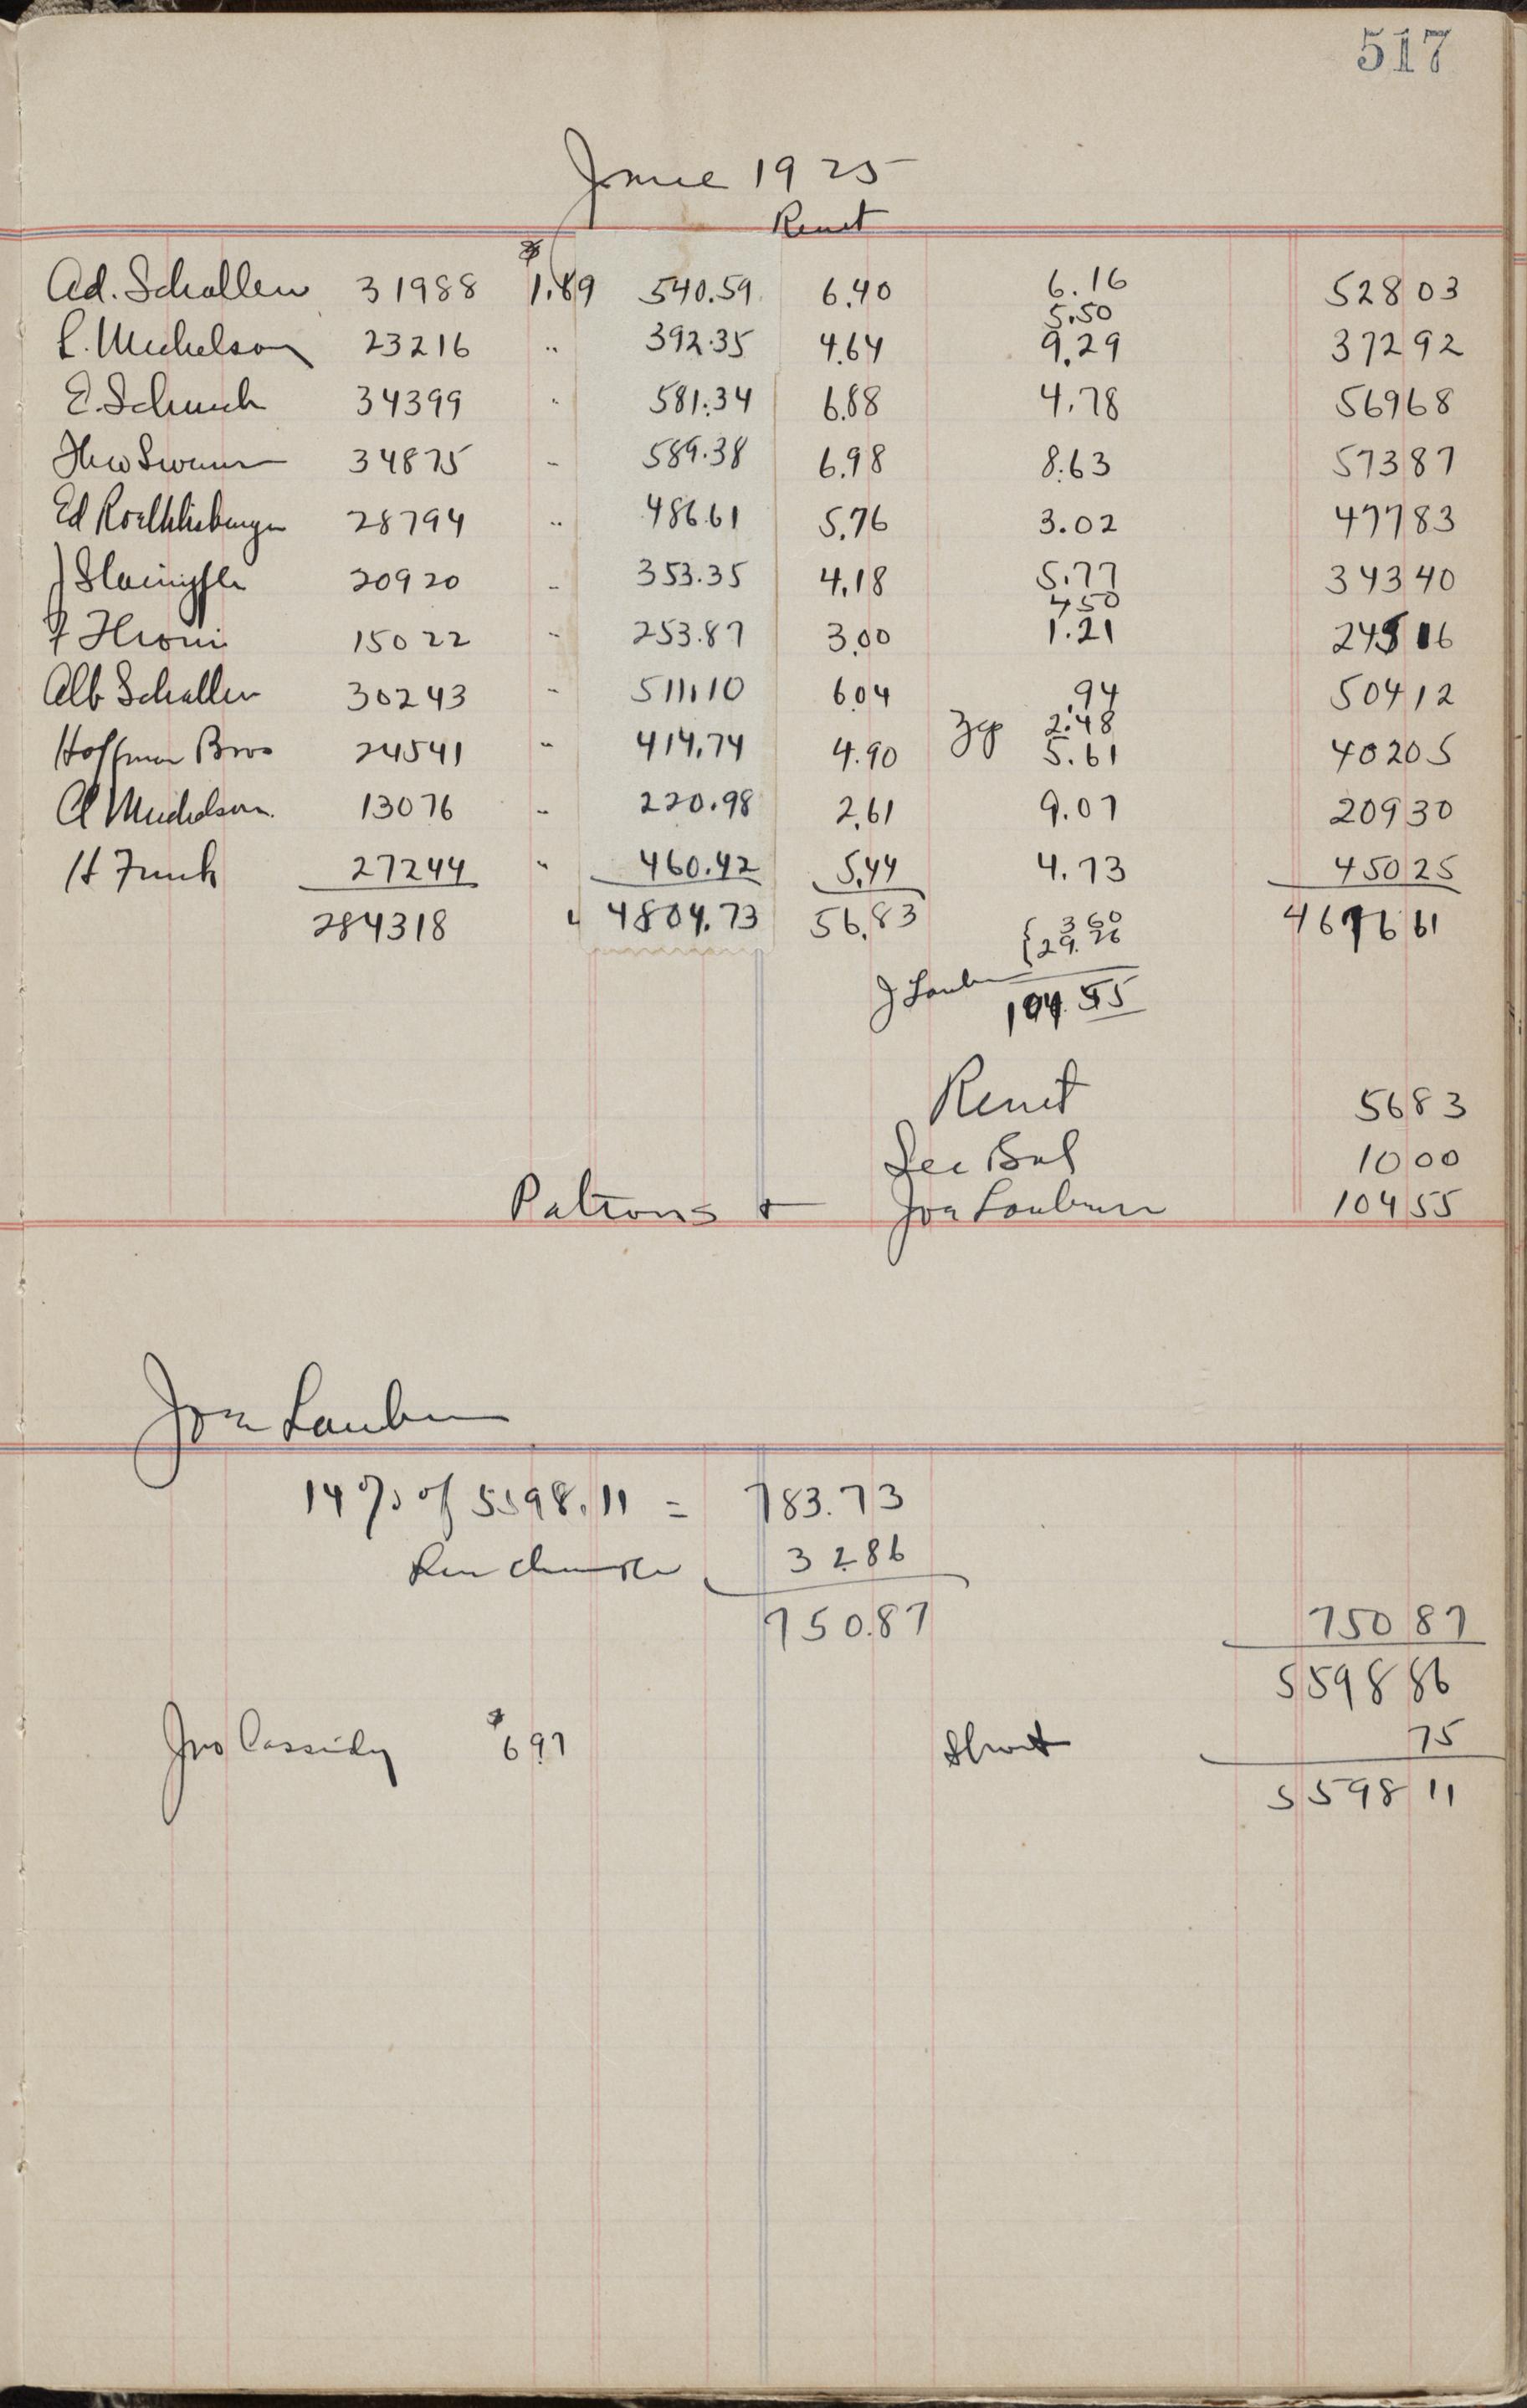 517
June 1925
Renet
Ad. Schallen 31988 $1.89 540.59 6.40 6.16 528 03
5.50
L. Michelson 23216 " 392.35 4.64 9.29 372 92
E. Schuch 34399 " 581.34 6.88 4.78 569 68
Theo Swann 34875 " 589.38 6.98 8.63 573 87
Ed Roethlisberger 28794 " 486.61 5.76 3.02 477 83
J 20920 " 353.35 4.18 5.77 343 40
4 50
F 15022 " 253.87 3.00 1.21 245 16
Alb Schallen 30243 " 511.10 6.04 .94 504 12
2.48
Hoffman Bros 24541 " 414.74 4.90 5.61 402 05
A Michelson 13076 " 220.98 2.61 9.07 209 30
H Funk 27244 " 460.42 5.44 4.73 450 25
284318 4804.73 56.83 { 3 60 4676 61
{ 29.26
J Lauber 104 55
Renet 56 83
Sec Sal 10 00
Patrons + Joa Lauber 104 55
Joa Lauber
14% of 5598.11 = 783.73
32 86
750.87 750 87
5598 86
Jno Cassidy $6.97 Short 75
5598 11